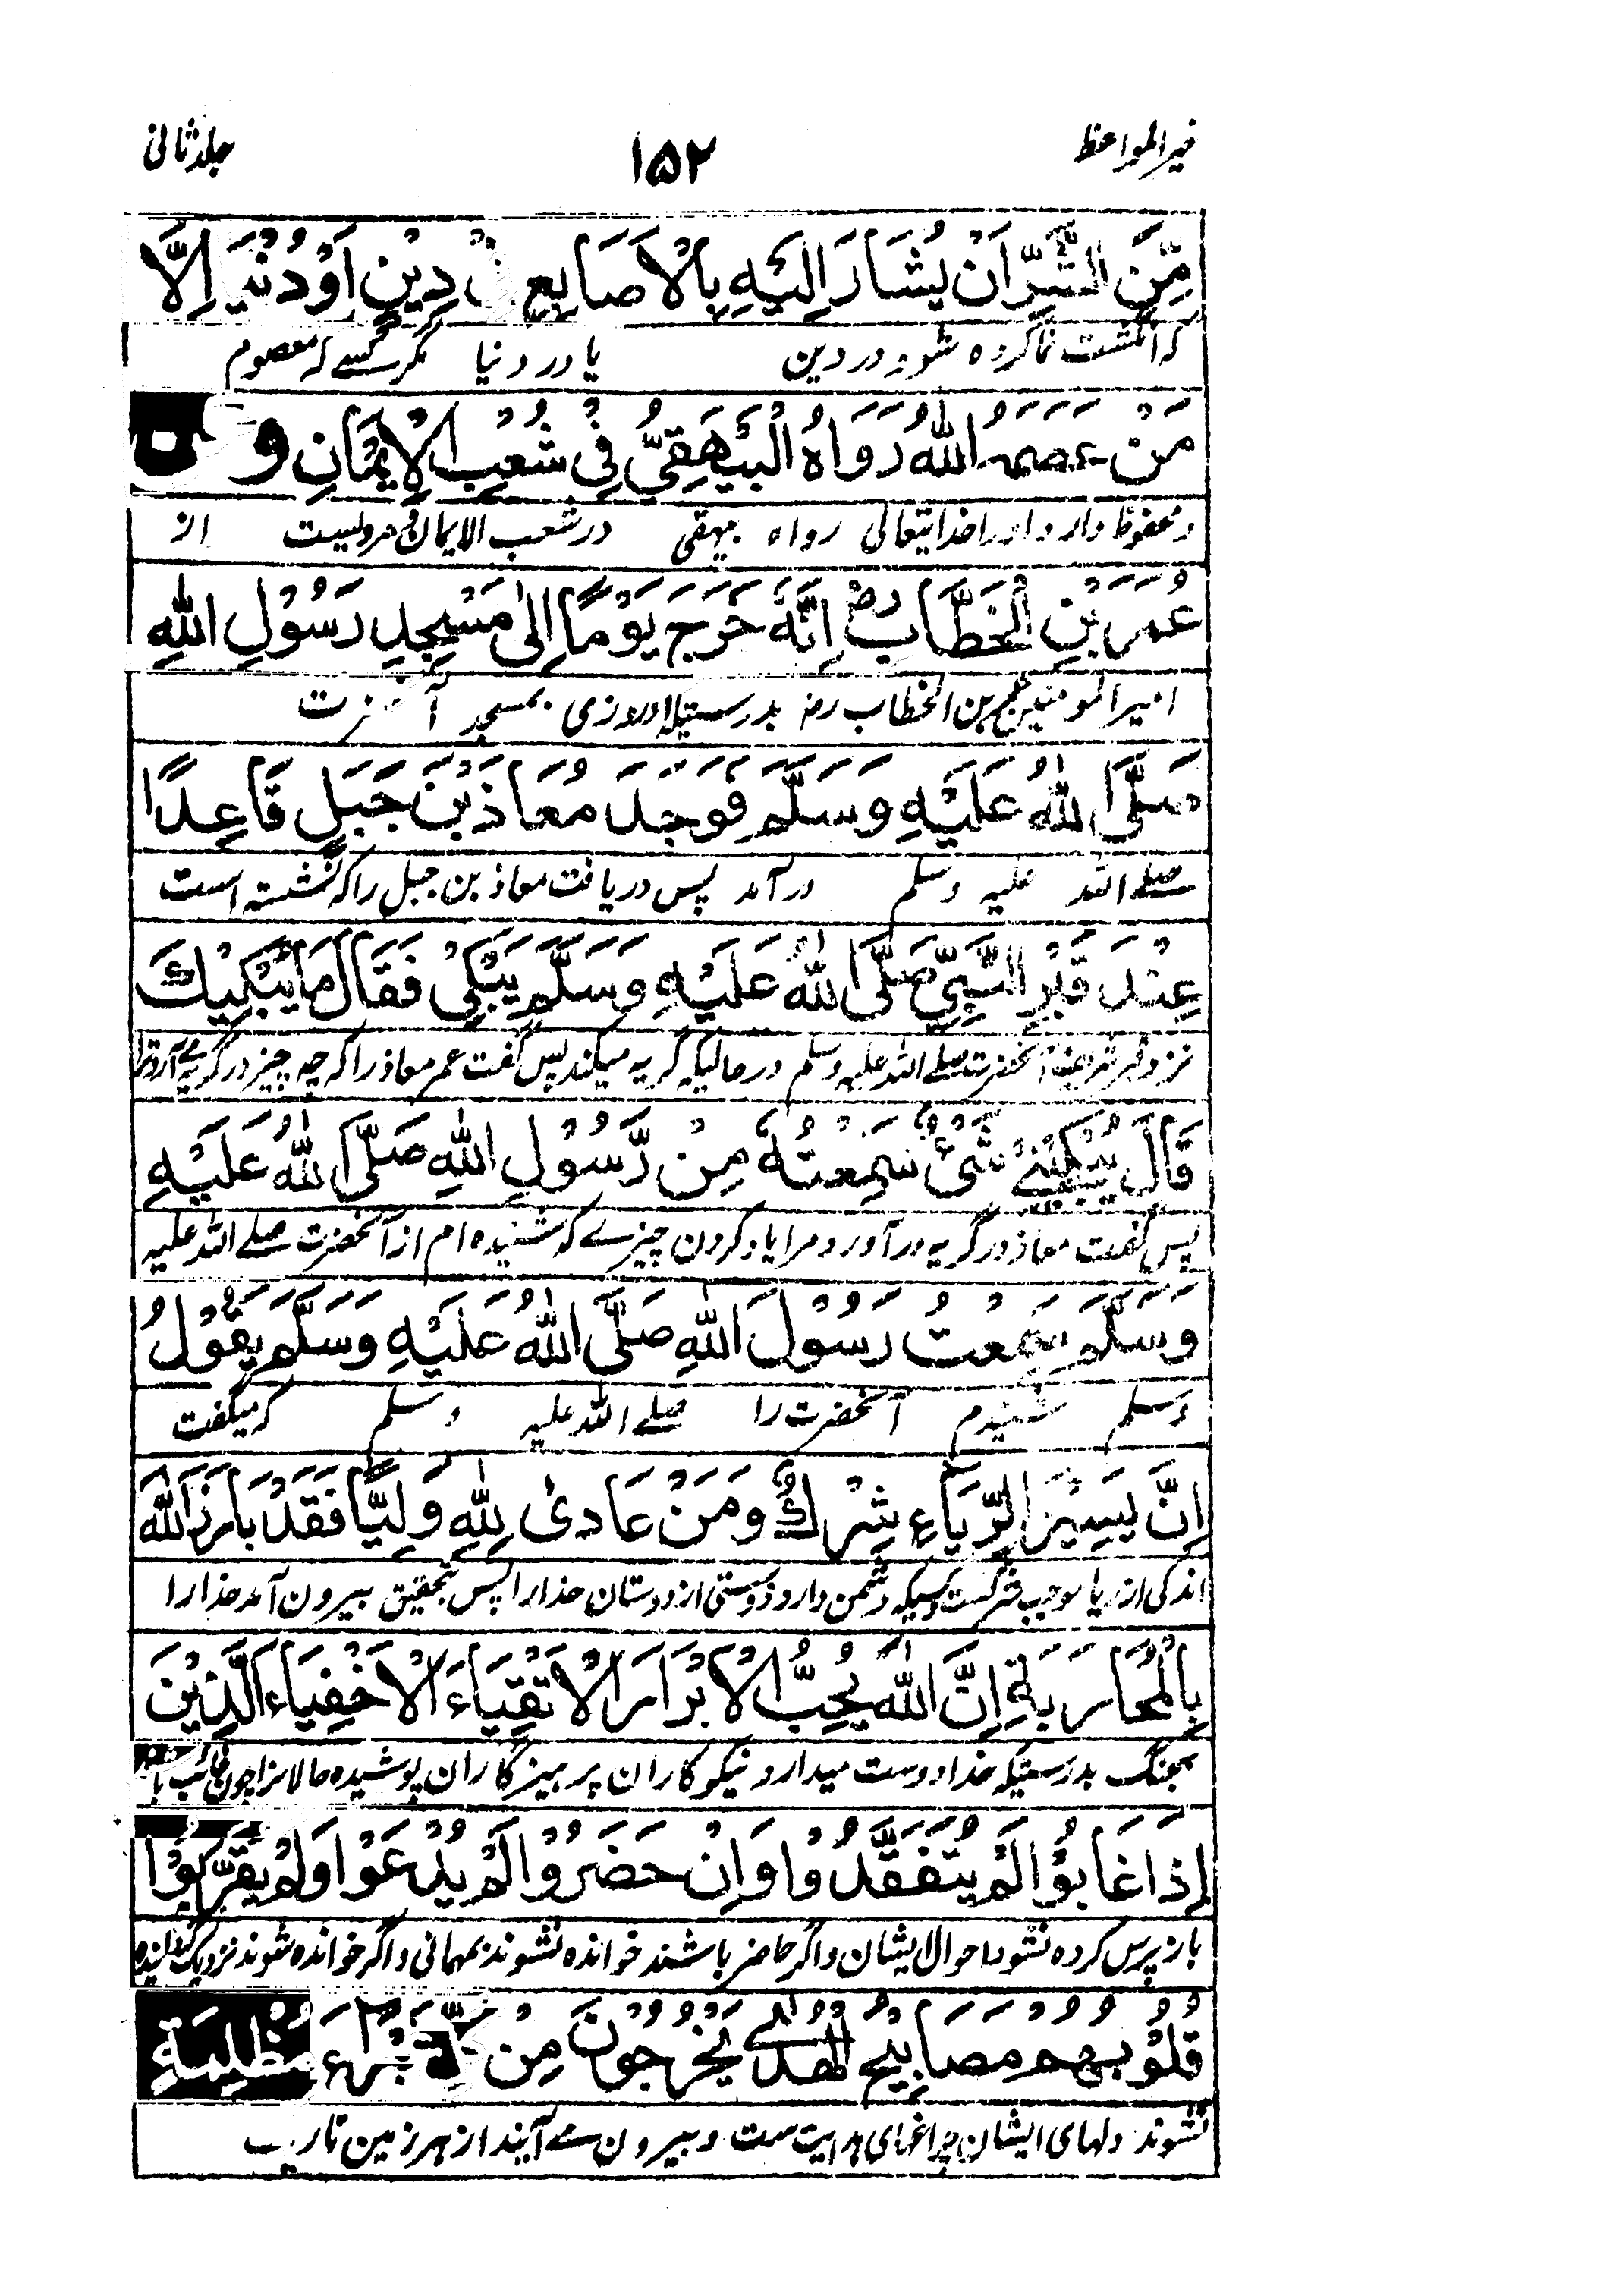 خیر المواعظ ۱۵۲ جلد ثانی
مِّنَ الشَّرِّ اَنْ یُشَارَ اِلَیْهِ بِالْاَصَابِعِ دِیْنٍ اَوْ دُنْیَا اِلَّا
که انگشت نما کرده شود در دین یا در دنیا مگر کسے که معصوم
مَنْ عَصَمَهُ اللهُ رَوَاهُ الْبَیْهَقِیُّ فِیْ شُعَبِ الْاِیْمَانِ وَ
و محفوظ دارد او را خدایتعالی رواه بیهقی در شعب الایمان و مرویست از
عُمَرَ بْنِ الْخَطَّابِ رض اِنَّهٗ خَرَجَ یَوْمًا اِلٰی مَسْجِدِ رَسُوْلِ اللهِ
امیر المومنین عمر بن الخطاب رضه بدرستیکه او روزی بمسجد
صَلَّی اللهُ عَلَیْهِ وَسَلَّمَ فَوَجَدَ مُعَاذَ بْنَ جَبَلٍ قَاعِدًا
صلے الله علیه وسلم در آمد پس دریافت معاذ بن جبل را که نشسته است
عِنْدَ قَبْرِ النَّبِیِّ صَلَّی اللهُ عَلَیْهِ وَسَلَّمَ یَبْکِیْ فَقَالَ مَا یُبْکِیْكَ
نزد قبر شریف آنحضرت صلے الله علیه وسلم در حالیکه گریه میکند پس گفت عمر معاذ را که چه چیز در گریه مے آرد ترا
قَالَ یُبْکِیْنِیْ شَیْءٌ سَمِعْتُهٗ مِنْ رَّسُوْلِ اللهِ صَلَّی اللهُ عَلَیْهِ
پس گفت معاذ در گریه در آورد مرا یاد کردن چیزے که شنیده ام از آنحضرت صلے الله علیه
وَسَلَّمَ سَمِعْتُ رَسُوْلَ اللهِ صَلَّی اللهُ عَلَیْهِ وَسَلَّمَ یَقُوْلُ
وسلم شنیدم آنحضرت را صلے الله علیه وسلم که میگفت
اِنَّ یَسِیْرَ الرِّیَاءِ شِرْكٌ وَمَنْ عَادٰی لِلّٰهِ وَلِیًّا فَقَدْ بَارَزَ اللهَ
اندکی از ریا موجب شرکست و کسیکه دشمن دارد دوستی از دوستان خدا را پس بتحقیق بیرون آمد خدا را
بِالْمُحَارَبَةِ اِنَّ اللهَ یُحِبُّ الْاَبْرَارَ الْاَتْقِیَاءَ الْاَخْفِیَاءَ الَّذِیْنَ
بجنگ بدرستیکه خدا دوست میدارد نیکوکاران پرهیزگاران پوشیده حالانرا چون غائب
اِذَا غَابُوْا لَمْ یُتَفَقَّدُوْا وَاِنْ حَضَرُوْا لَمْ یُدْعَوْا وَلَمْ یُقَرَّبُوْا
باز پرس کرده نشود احوال ایشان و اگر حاضر باشند خوانده نشوند بمهمانی و اگر خوانده شوند نزدیک
قُلُوْبُهُمْ مَصَابِیْحُ الْهُدٰی یَخْرُجُوْنَ مِنْ
نشوند دلهای ایشان چراغهای هدایت ست و بیرون مے آیند از هر زمین